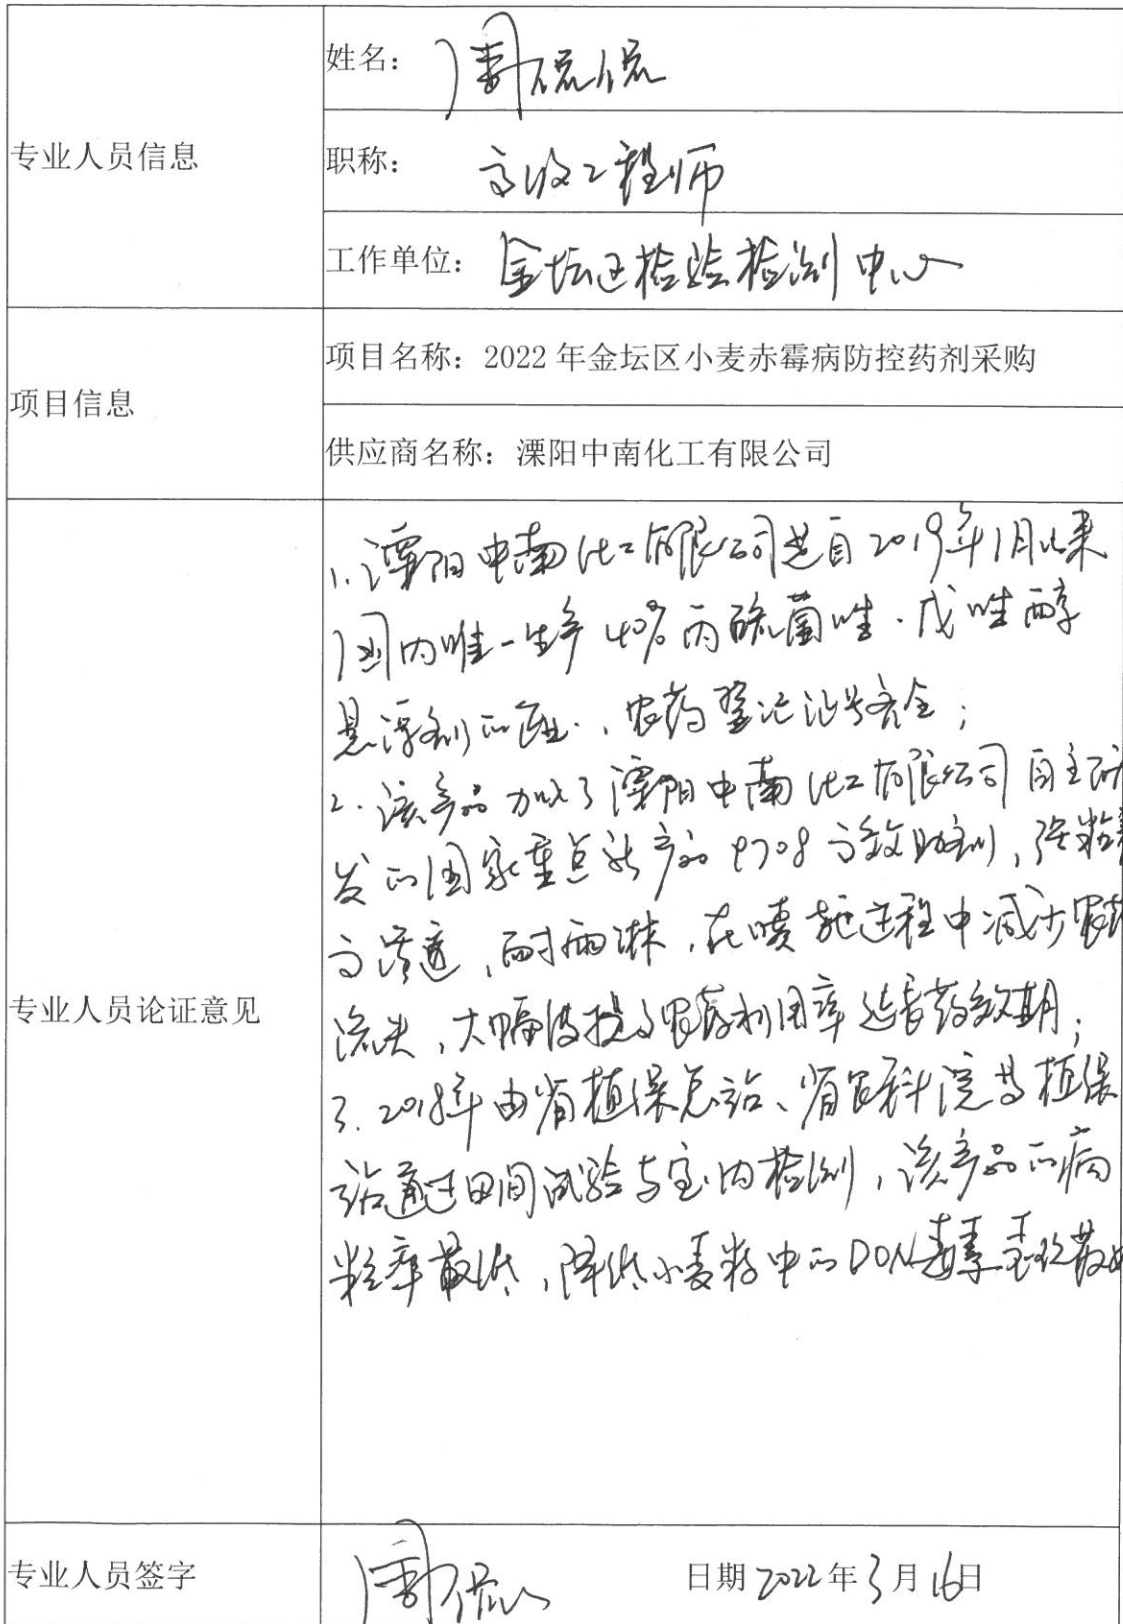 专业人员信息
姓名：周
职称：高级工程师
工作单位：金坛区检验检测中心
项目信息
项目名称：2022年金坛区小麦赤霉病防控药剂采购
供应商名称：溧阳中南化工有限公司
专业人员论证意见
1.溧阳中南化工有限公司是自2019年1月以来
国内唯一生产40%丙硫菌唑·戊唑醇
悬浮剂的企业，农药登记证号齐全；
2.该产品加入了溧阳中南化工有限公司自主研
发的国家重点新产品9708高效助剂，强粘着
高渗透，耐雨淋，在喷施过程中减少农药
流失，大幅度提高农药利用率延长药效期；
3.2018年由省植保总站、省农科院等植保
站通过田间试验与室内检测，该产品的病
粒率最低，降低小麦籽中的DON毒素
专业人员签字
周
日期2022年3月16日